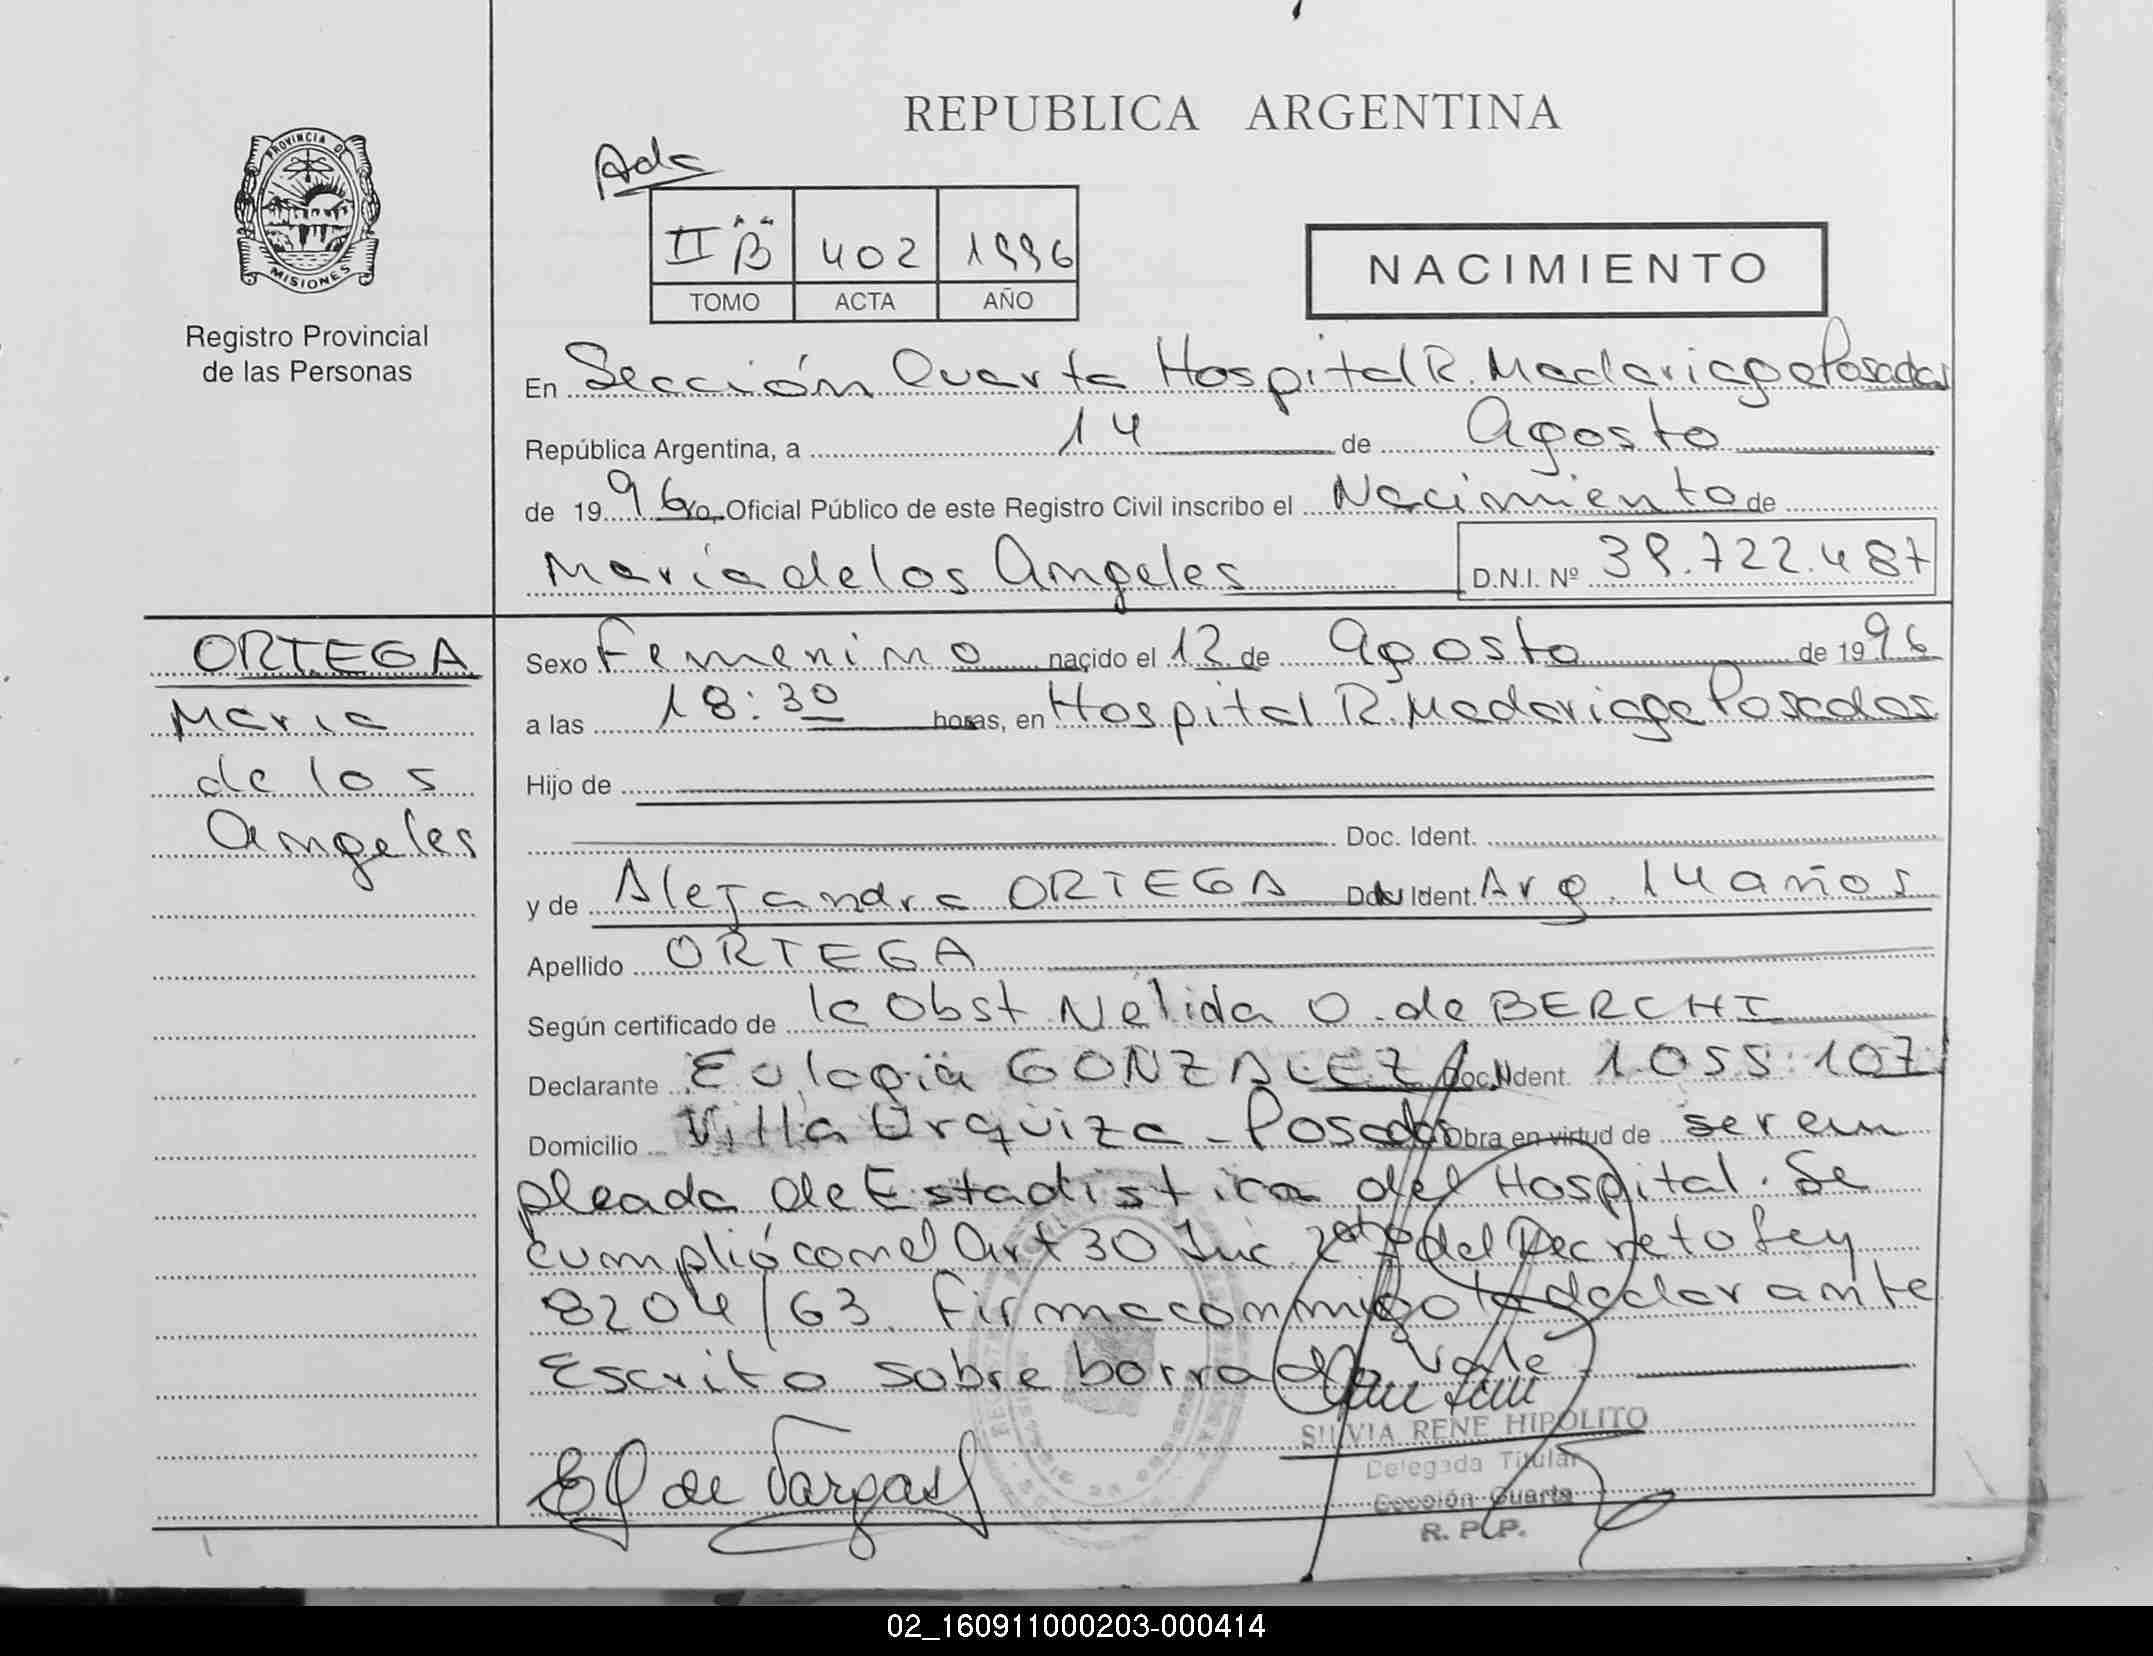 REPUBLICA ARGENTINA
PROVINCIA DE
MISIONES
Registro Provincial
de las Personas
Adc
II "B" 402 1996
TOMO ACTA AÑO
NACIMIENTO
En Sección Cuarta Hospital R. Madariaga Posadas
República Argentina, a 14 de Agosto
de 1996 yo, Oficial Público de este Registro Civil inscribo el Nacimiento de
María de los Angeles D.N.I. Nº 39.722.487
ORTEGA
Maria
de los
Angeles
Sexo Femenino nacido el 12 de Agosto de 1996
a las 18:30 horas, en Hospital R. Madariaga Posadas
Hijo de
Doc. Ident.
y de Alejandra ORTEGA Doc. Ident. Arg. 14 años
Apellido ORTEGA
Según certificado de la Obst Nélida O. de BERCHI
Declarante Eulogia GONZALEZ Doc. Ident. 1.055.107
Domicilio Villa Urquiza - Posadas Obra en virtud de ser em
pleada de Estadistica del Hospital. Se
cumplió con el Art 30 Inc. 2do del Decreto Ley
8204/63. Firma conmigo la declarante
Escrito sobre borrado Vale
E G de Vargas
SILVIA RENE HIPOLITO
Delegada Titular
Sección Cuarta
R. P. P.
02_160911000203-000414